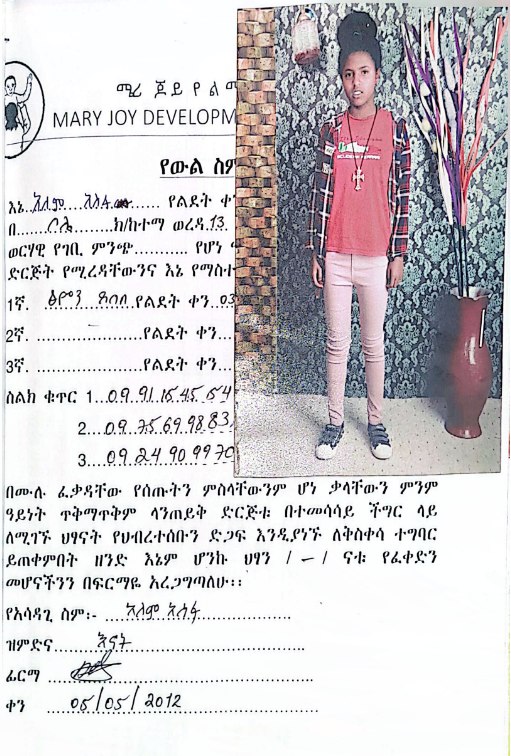 ሜሪ ጆይ የልማ
MARY JOY DEVELOPM
የውል ስም
እኔ አለም አሰፋ የልደት ቀ
በ....ቦሌ....ክ/ከተማ ወረዳ.13.
ወርሃዊ የገቢ ምንጭ........... የሆነ
ድርጅት የሚረዳቸውንና እኔ የማስተ
1ኛ. የልደት ቀን..03
2ኛ. ....................የልደት ቀን...
3ኛ. ....................የልደት ቀን...
ስልክ ቁጥር 1...09 91 15 45 54
2...09 75 69 98 83
3...09 24 90 99 70
በሙሉ ፈቃዳቸው የሰጡትን ምስላቸውንም ሆነ ቃላቸውን ምንም
ዓይነት ጥቅማጥቅም ላንጠይቅ ድርጅቱ በተመሳሳይ ችግር ላይ
ለሚገኙ ህፃናት የህብረተሰቡን ድጋፍ እንዲያገኙ ለቅስቀሳ ተግባር
ይጠቀምበት ዘንድ እኔም ሆንኩ ህፃን / – / ናቱ የፈቀድን
መሆናችንን በፍርማዬ አረጋግጣለሁ፡፡
የአሳዳጊ ስም፡- ....አለም አሰፋ....
ዝምድና..........እናት..........
ፊርማ
ቀን ....05/05/2012....